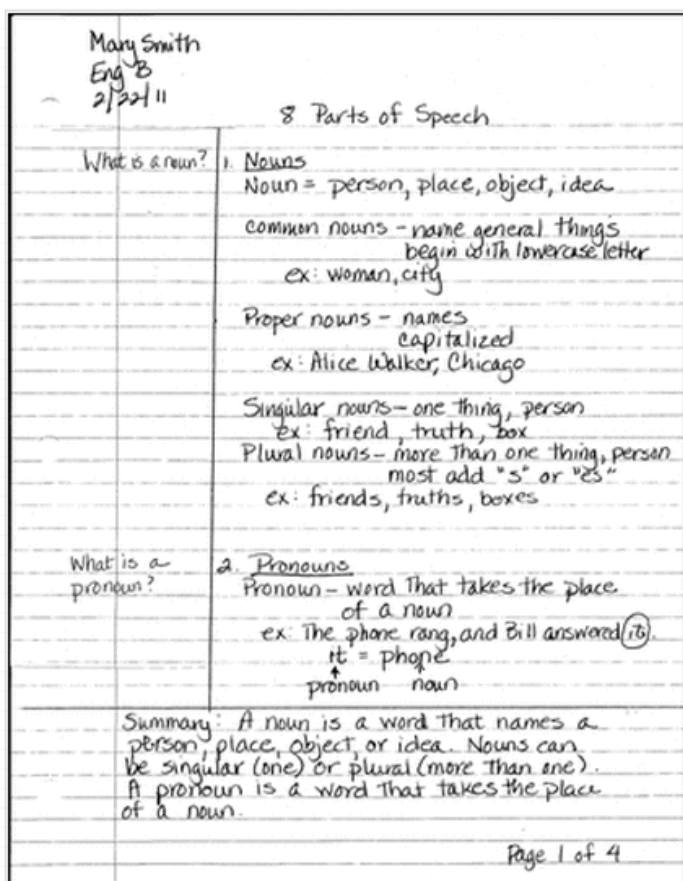 Mary Smith
Eng B
2/22/11
8 Parts of Speech
What is a noun?
1. Nouns
Noun = person, place, object, idea
common nouns - name general things
begin with lowercase letter
ex: woman, city
Proper nouns - names
capitalized
ex: Alice Walker, Chicago
Singular nouns - one thing, person
ex: friend, truth, box
Plural nouns - more than one thing, person
most add "s" or "es"
ex: friends, truths, boxes
What is a
pronoun?
2. Pronouns
Pronoun - word that takes the place
of a noun
ex: The phone rang, and Bill answered it.
it = phone
pronoun noun
Summary: A noun is a word that names a
person, place, object, or idea. Nouns can
be singular (one) or plural (more than one).
A pronoun is a word that takes the place
of a noun.
Page 1 of 4